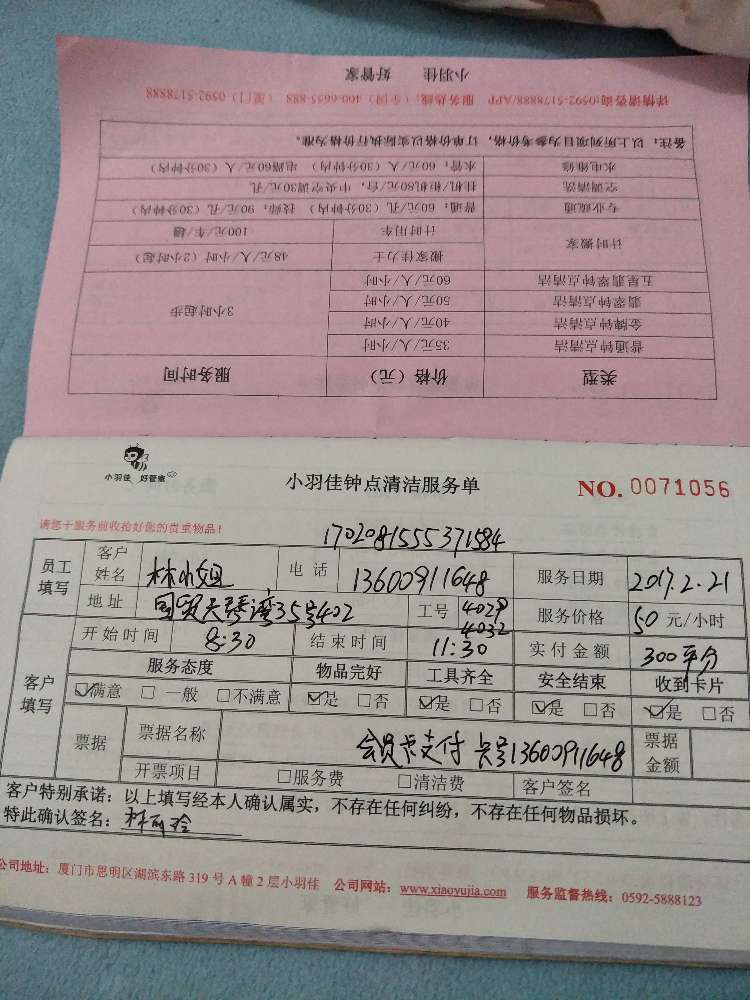 小羽佳 好管家
详情请咨询:0592-5178888/APP 服务热线:(全国)400-6655-888 (厦门)0592-5178888
备注:以上所列项目为参考价格,订单价格以实际执行价格为准。
水电维修 水管:60元/人(30分钟内) 电路60元/人(30分钟内)
空调清洗 挂机/柜机80元/台,中央空调30元/孔
专业疏通 普通:60元/孔(30分钟内) 技师:90元/孔(30分钟内)
计时搬家 计时用车 100元/车/趟
搬家佳力士 48元/人/小时(2小时起)
五星翡翠钟点清洁 60元/人/小时 3小时起步
翡翠钟点清洁 50元/人/小时
金牌钟点清洁 40元/人/小时
普通钟点清洁 35元/人/小时
类型 价格(元) 服务时间
小羽佳 好管家
小羽佳钟点清洁服务单
NO. 0071056
请您于服务前收拾好您的贵重物品!
1702081555371584
员工填写 客户姓名 林小姐 电话 13600911648 服务日期 2017.2.21
地址 国贸天琴湾35号402 工号 4029 4032 服务价格 50 元/小时
客户填写 开始时间 8:30 结束时间 11:30 实付金额 300平分
服务态度 物品完好 工具齐全 安全结束 收到卡片
☑满意 □一般 □不满意 ☑是 □否 ☑是 □否 ☑是 □否 ☑是 □否
票据 票据名称 会员卡支付 卡号13600911648 票据金额
开票项目 □服务费 □清洁费 客户签名
客户特别承诺:以上填写经本人确认属实,不存在任何纠纷,不存在任何物品损坏。
特此确认签名:林丽玲
公司地址:厦门市思明区湖滨东路319号A幢2层小羽佳 公司网站:www.xiaoyujia.com 服务监督热线:0592-5888123